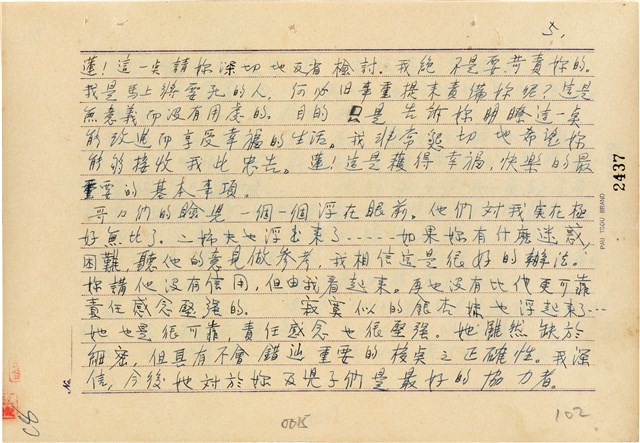 5.
蓮！這一点請妳深切地反省檢討。我絕不是要苛責妳的。
我是馬上將要死的人，何必旧事重提来責備妳呢？這是
無意義而没有用意的。目的只是告訴妳明瞭這一点
能改進而享受幸福的生活。我非常懇切地希望妳
能够接收我此忠告。蓮！這是獲得幸福，快樂的最
重要的基本事項。
哥々們的臉兒一個一個浮在眼前。他們对我实在極
好無比了。二姊夫也浮起来了-----如果妳有什麼迷惑，
困難，聽他的意見做参考，我相信這是很好的辦法。
妳講他没有信用，但由我看起来。再也没有比他更可靠
責任感念堅強的。 寂寞似的銀杏 也浮起来了---
她也是很可靠，責任感念也很堅強。她雖然缺於
細密，但具有不會錯過重要的核实之正確性。我深
信，今後她对於妳及児子們是最好的協力者。
2437
PAU TSOU BRAND
No.
0015
102